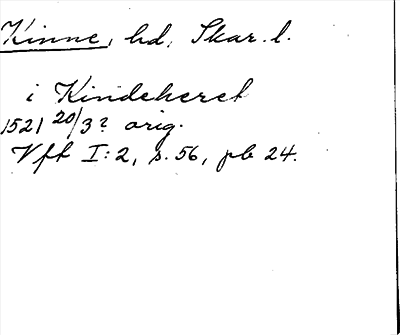 Kinne, hd, Skar. l.
i Kindeheret
1521 20/3? orig.
Vft I:2, s. 56, pb 24.